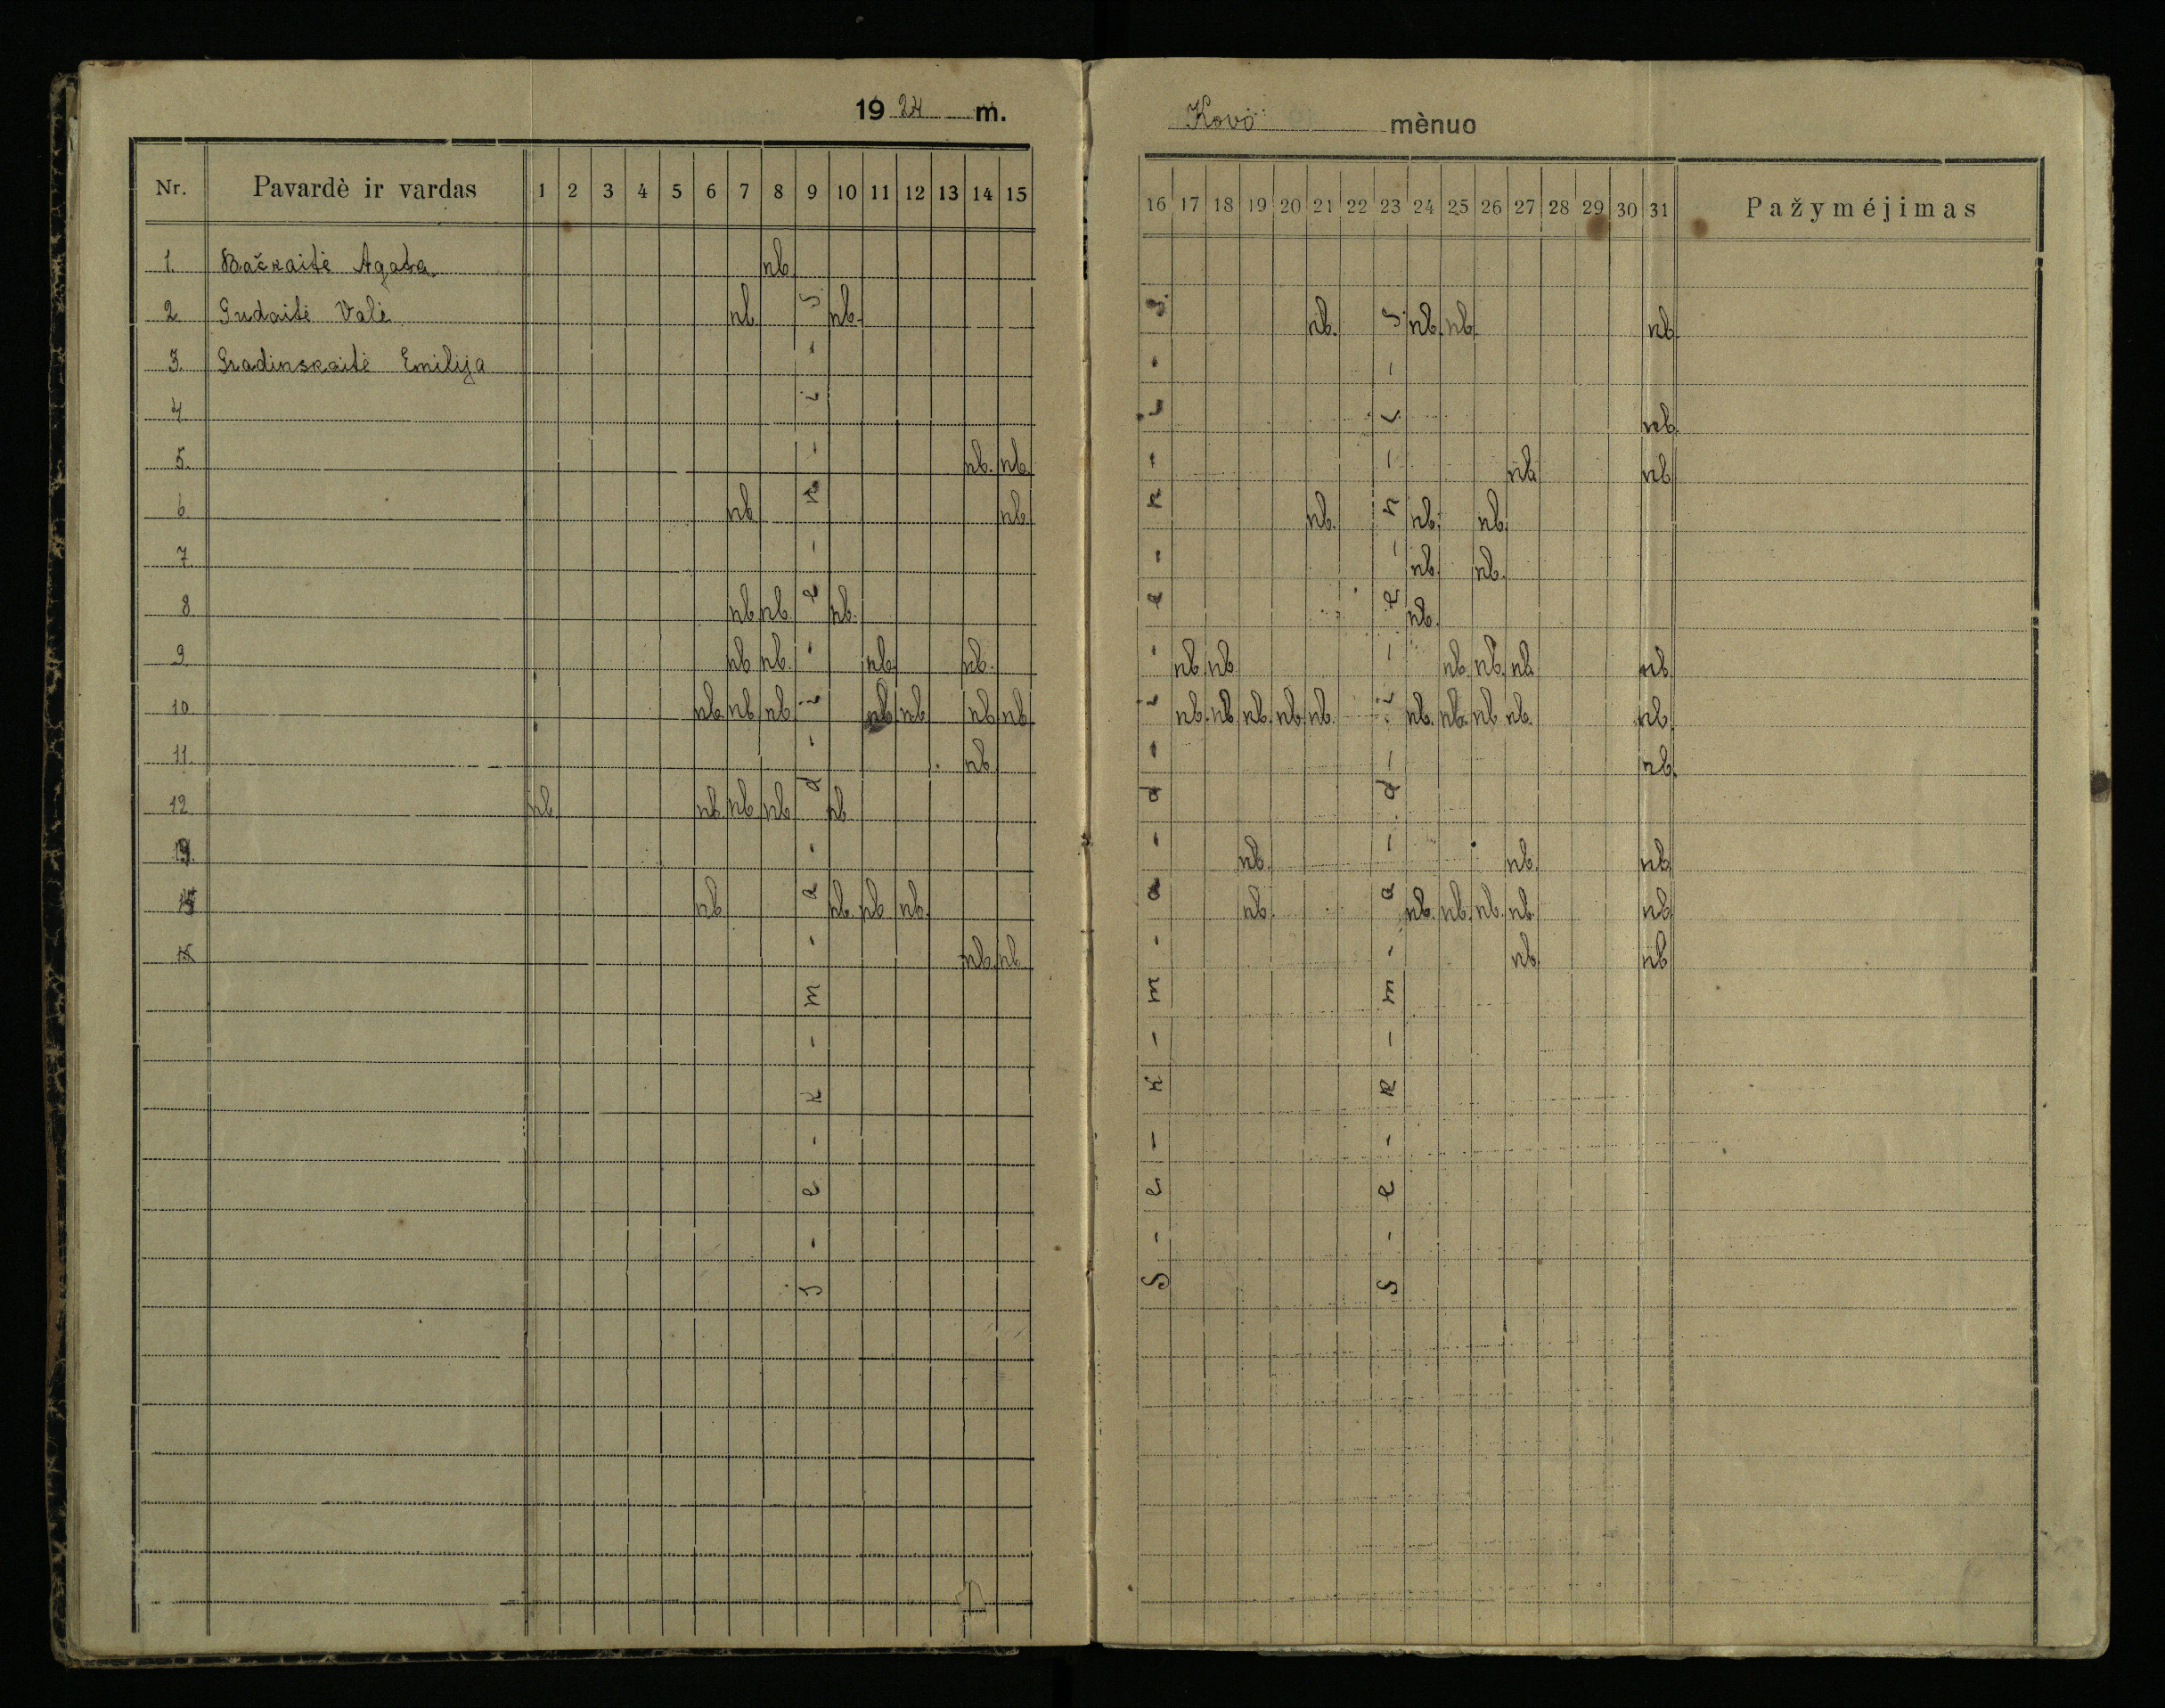 1924 m.
Nr. Pavardė ir vardas 1 2 3 4 5 6 7 8 9 10 11 12 13 14 15
1. Bačkaitė Agota. nb.
2 Gudaitė Valė nb. nb.
3. Gradinskaitė Emilija
4
5. nb. nb.
6 nb. nb.
7
8 nb nb. nb.
9 nb nb. nb. nb.
10 nb nb nb nb nb nb nb
11. nb
12 nb nb nb nb nb
13.
14 nb nb. nb nb.
15 nb. nb
S-e-k-m-a-d-i-e-n-i-s
Kovo mėnuo
16 17 18 19 20 21 22 23 24 25 26 27 28 29 30 31 Pažymėjimas
nb. nb. nb. nb.
nb.
nb. nb
nb. nb. nb.
nb. nb.
nb.
nb. nb nb. nb. nb. nb.
nb. nb nb. nb. nb. nb. nb. nb nb. nb.
nb.
nb. nb. nb.
nb. nb. nb. nb. nb. nb.
nb. nb
S-e-k-m-a-d-i-e-n-i-s.
S-e-k-m-a-d-i-e-n-i-s.